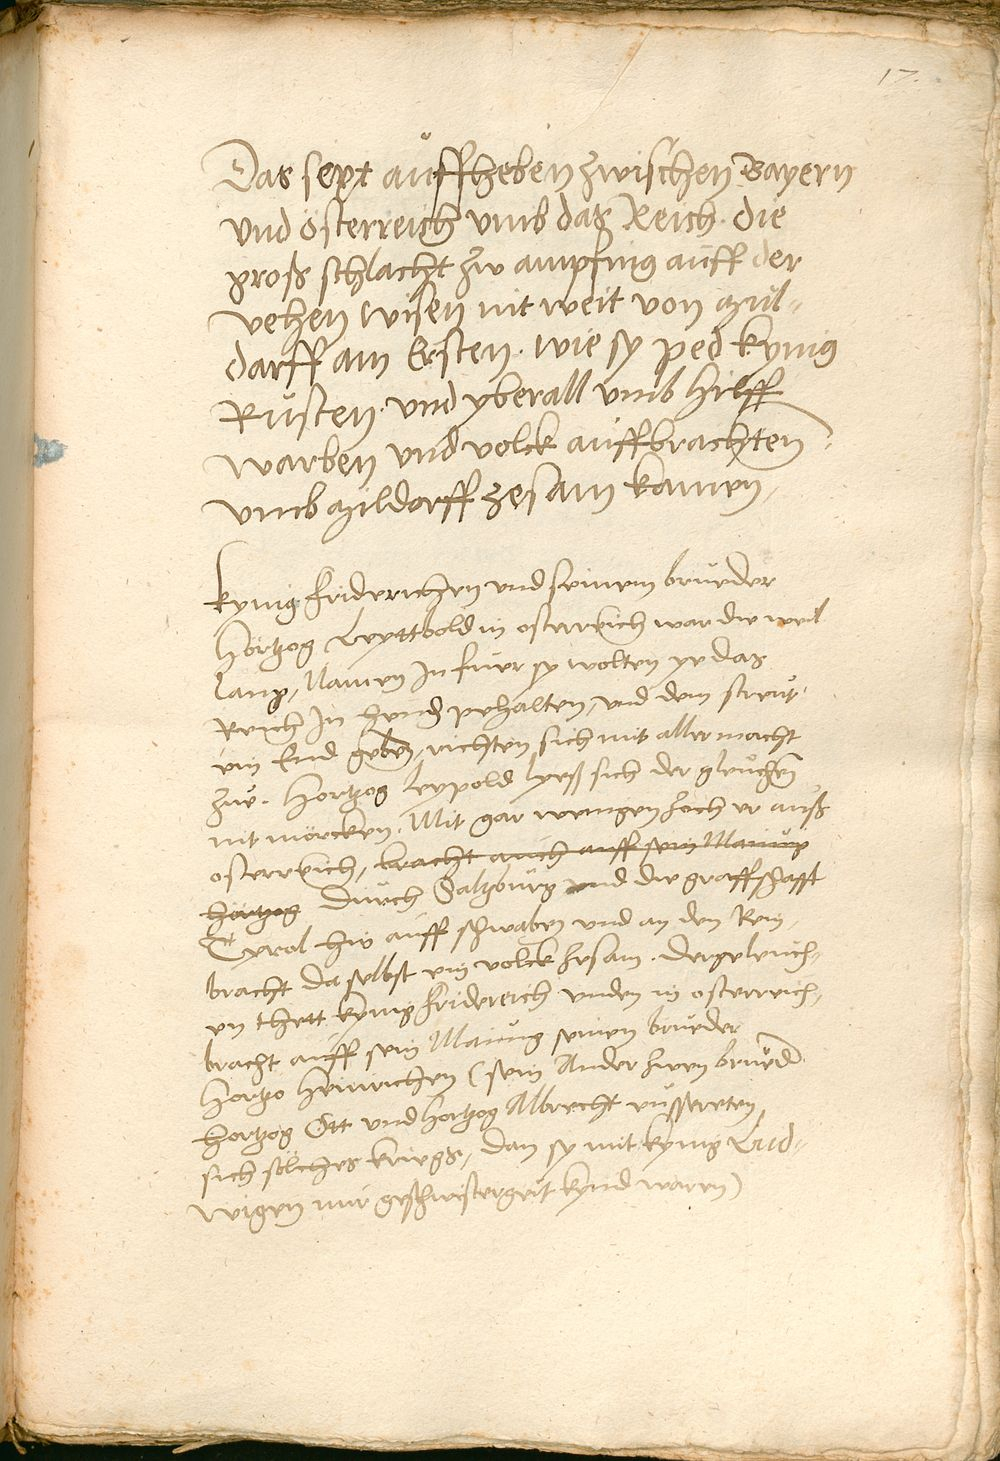 17.
Das sext auffheben zwischen Bayern
und österreich umb das Reich. die
groß schlacht zw ampfing auff der
vehen wisen nit weit von Mül-
darff am Ersten. wie sy ped kynig
Rüsten. und yberall umb hilff
warben und volck auffbrachten
umb Mildorff zesam kamen,
kynig friderichen und seinem brueder
Hörtzog Leyttbold in osterreich war die weil
lang, Namen In für sy wolten ye das
Reich In hend pehalten, und dem streut
ein End geben, richten sich mit aller macht
zue. Hortzog leypold lyeß sich der gleuchen
nit mörcken. Mit gar wenigen zoch er auß
osterreich, bracht auch auff sein Mainung
hortzog durch Saltzburg und die graffschafft
Tyrol hin auff schwaben und an den Rein,
bracht da selbst ein volck zesam. dergeleich-
en thett kynig fridereich unden in osterreich,
bracht auff sein Mainung seinen brueder
Hortzo Heinrichen (sein Ander zwen brued
hortzog Ott und hortzog Albrecht eussereten
sich sölches kriegs, dan sy mit kynig Lud-
wigen mir geschwistergeut kynd waren)